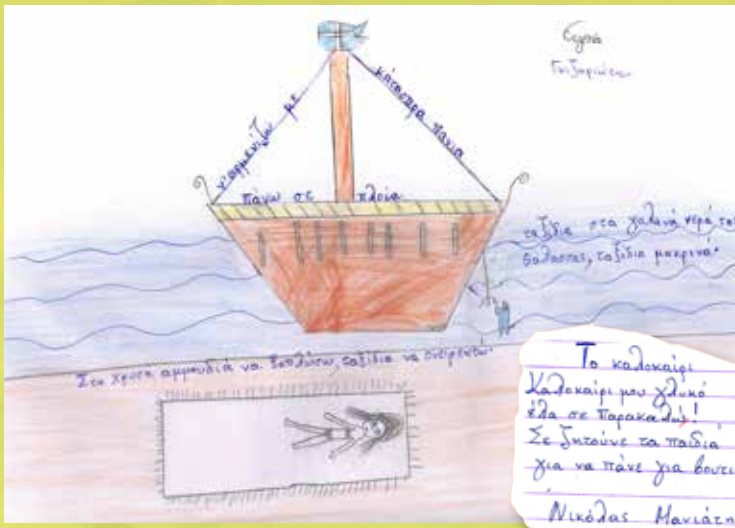 Ελένη
ν' αρμενίζω με
κάτασπρα πανιά
πάνω σε πλοία
ταξίδια στα γαλανά νερά της
θάλασσας, ταξίδια μακρινά.
Στη χρυσή αμμουδιά να ξαπλώσω, ταξίδια να ονειρευτώ.
Το καλοκαίρι
Καλοκαίρι μου γλυκό
έλα σε παρακαλώ!
Σε ζητούνε τα παιδιά
για να πάνε για βουτι
Νικόλας Μανιάτη